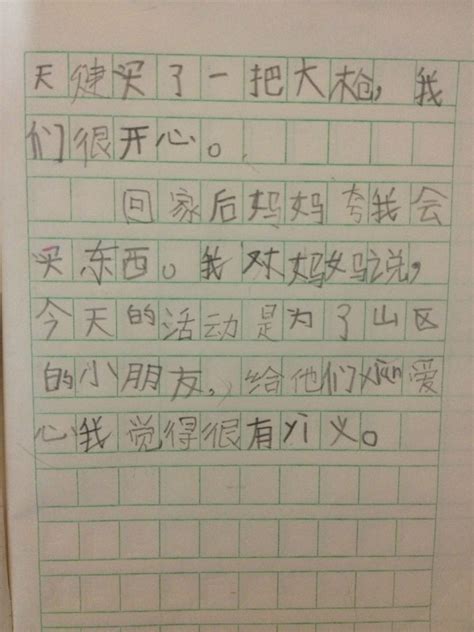 天健买了一把大枪，我
们很开心。
回家后妈妈夸我会
买东西。我对妈妈说，
今天的活动是为了山区
的小朋友，给他们xiàn爱
心我觉得很有yì义。